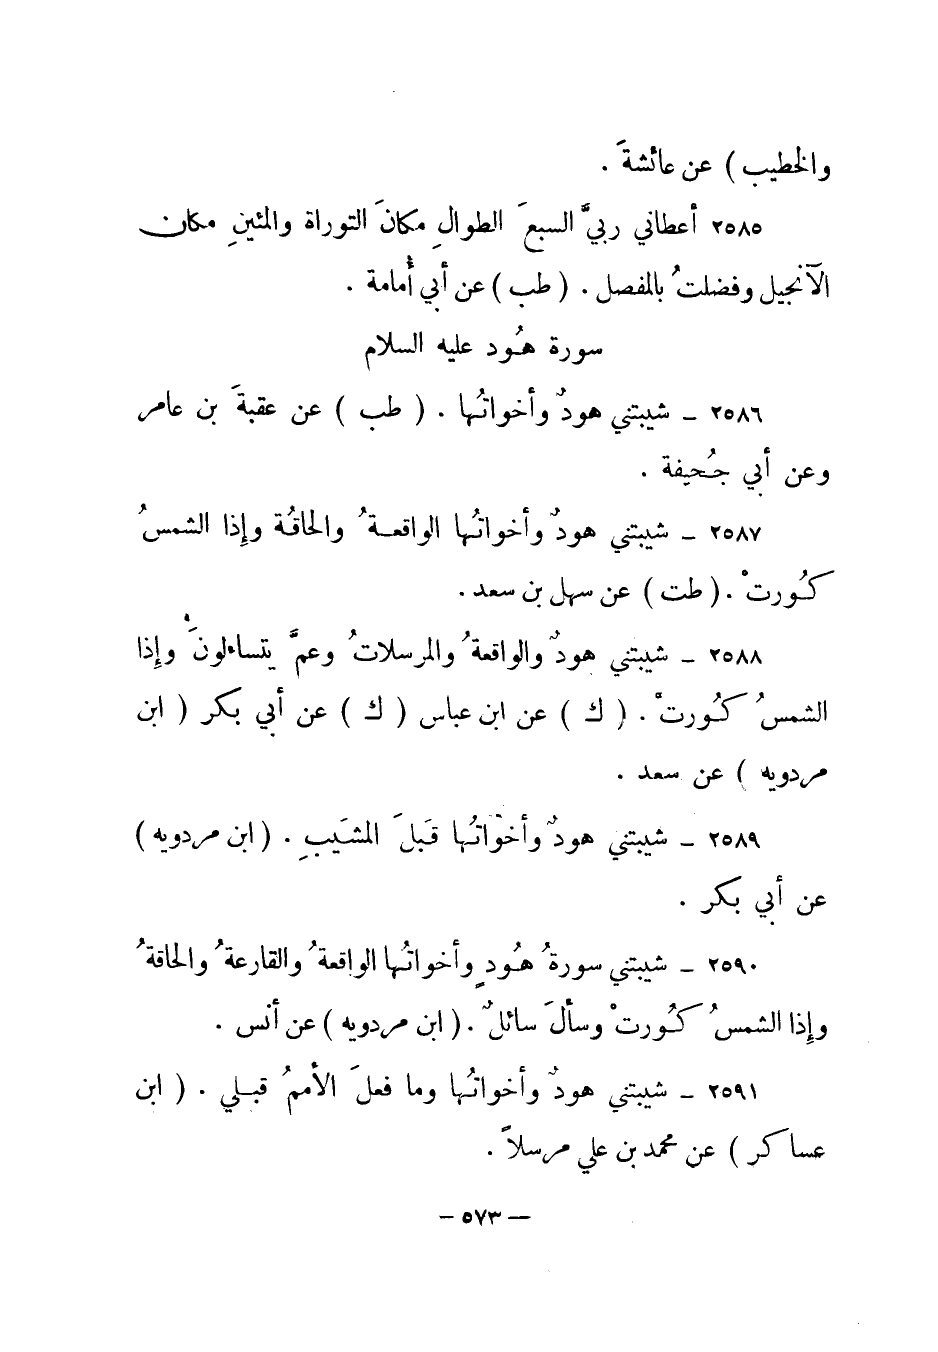 والخطيب ) عن عائشةَ .
٢٥٨٥ أعطاني ربيَّ السبعَ الطوالِ مكانَ التوراة والمئينِ مكان
الآنجيل وفضلتُ بالمفصل . ( طب ) عن أبي أُمامة .
سورة هُود عليه السلام
٢٥٨٦ ـ شيبتني هودٌ وأخواتُها . ( طب ) عن عقبةَ بن عامر
وعن أبي جُحيفة .
٢٥٨٧ ـ شيبتني هودٌ وأخواتُها الواقعةُ والحاقُة وإذا الشمسُ
كُورتْ . ( طت ) عن سهل بن سعد .
٢٥٨٨ ـ شيبتني هودٌ والواقعةُ والمرسلاتُ وعمَّ يتساءلونَ وإذا
الشمسُ كُورتْ . ( ك ) عن ابن عباس ( ك ) عن أبي بكر ( ابن
مردويه ) عن سعد .
٢٥٨٩ ـ شيبتني هودٌ وأخواتُها قَبلَ المشَيبِ . ( ابن مردويه )
عن أبي بكر .
٢٥٩٠ ـ شيبتني سورةُ هُودٍ وأخواتُها الواقعةُ والقارعةُ والحاقةُ
وإذا الشمسُ كُورتْ وسألَ سائلٌ . ( ابن مردويه ) عن أنس .
٢٥٩١ ـ شيبتني هودٌ وأخواتُها وما فعلَ الأممُ قبلي . ( ابن
عساكر ) عن محمد بن علي مرسلاً .
— ٥٧٣ —